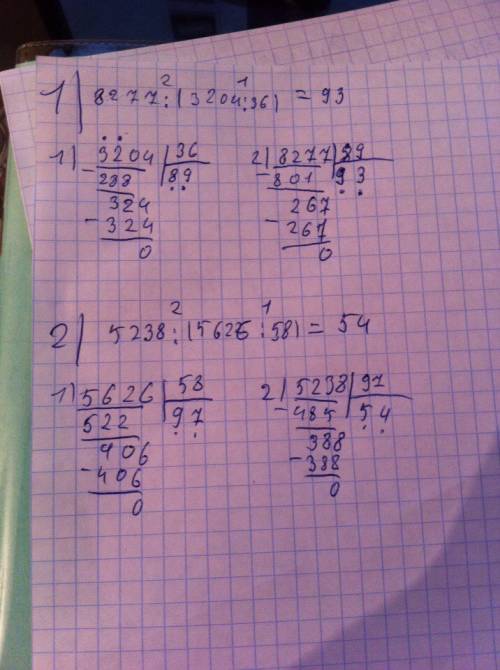 1) 8277:(3204:36) = 93
2 1
1) 3204 | 36
- 288 89
324
- 324
0
2) 8277 | 89
- 801 93
267
- 267
0
2) 5238:(5626:58) = 54
2 1
1) 5626 | 58
522 97
406
- 406
0
2) 5238 | 97
- 485 54
388
- 388
0